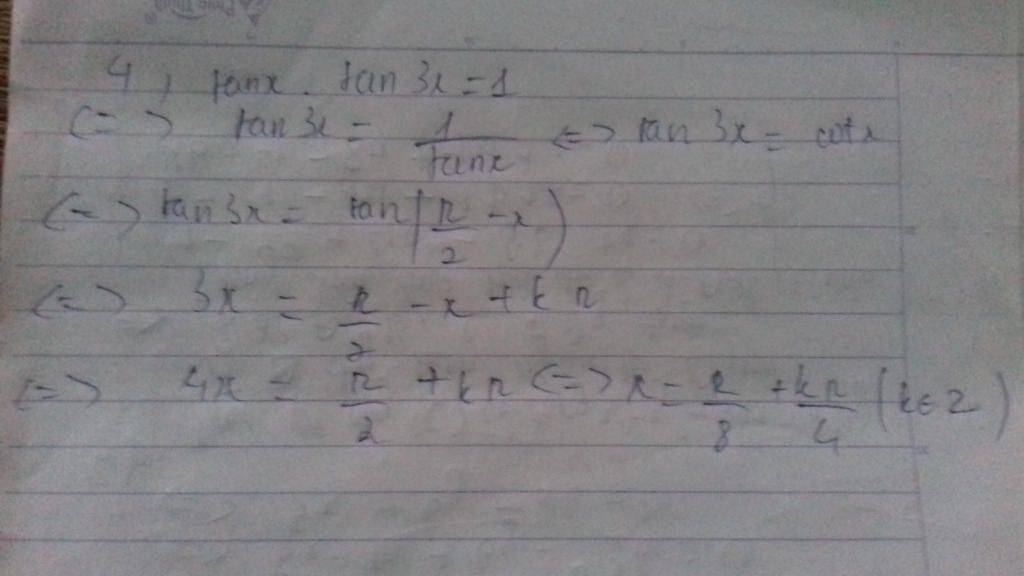 4, tanx. tan 3x = 1
<=> tan 3x = 1/tanx <=> tan 3x = cotx
<=> tan 3x = tan(π/2 - x)
<=> 3x = π/2 - x + kπ
<=> 4x = π/2 + kπ <=> x = π/8 + kπ/4 (k∈Z)